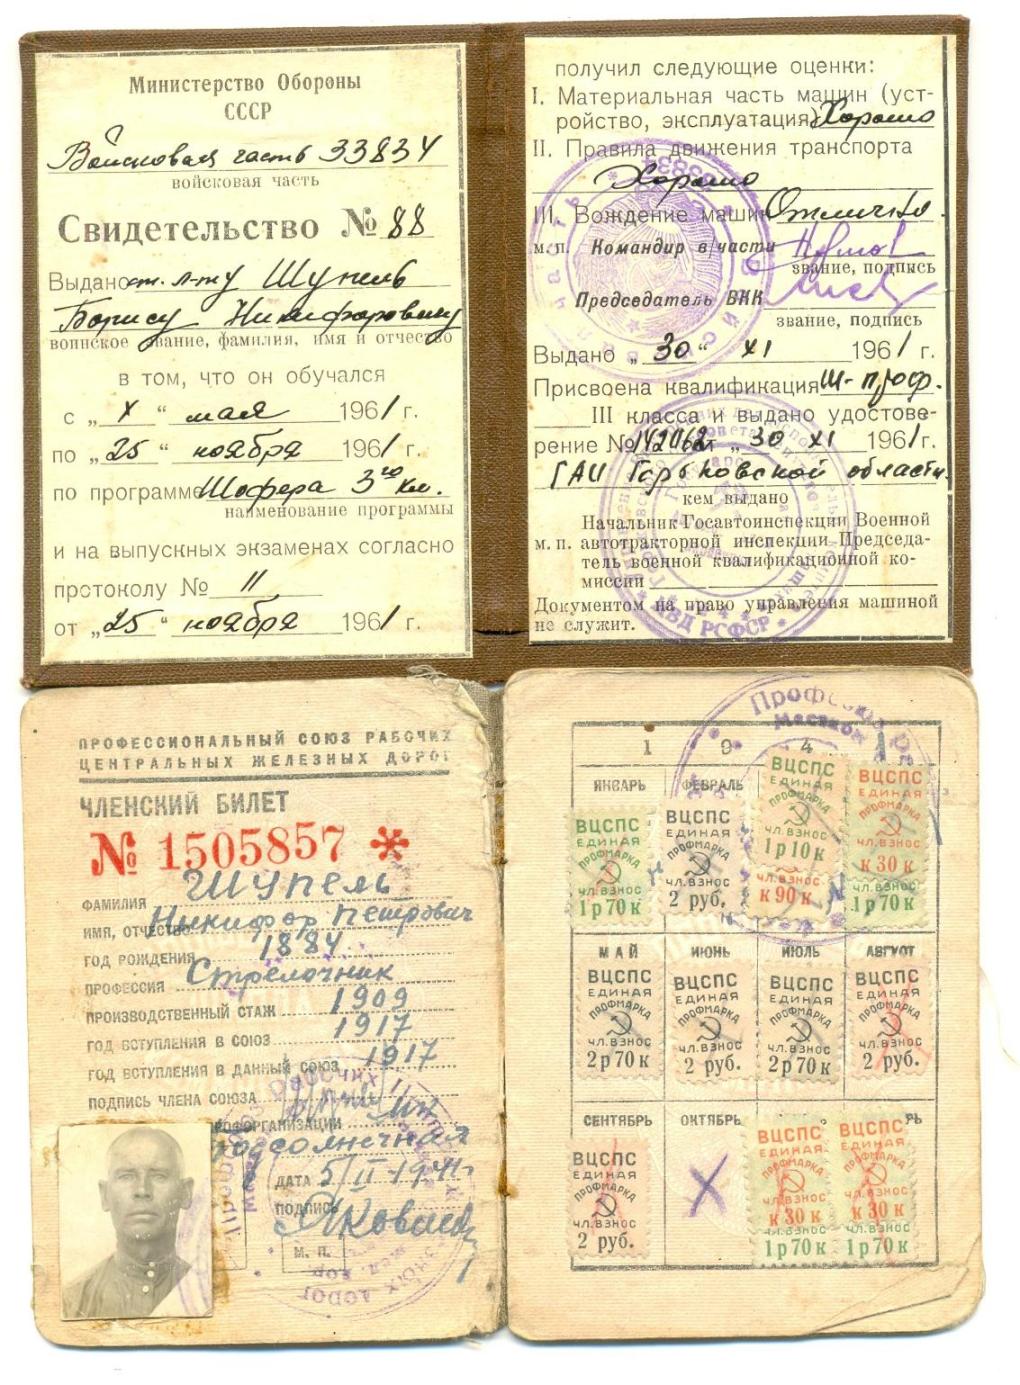 Министерство Обороны
СССР
Войсковая часть 33834
войсковая часть
Свидетельство № 88
Выдано ст. л-ту Шупель
Борису Никифоровичу
воинское звание, фамилия, имя и отчество
в том, что он обучался
с „X“ мая 1961 г.
по „25“ ноября 1961 г.
по программе Шофера 3го кл.
наименование программы
и на выпускных экзаменах согласно
протоколу № 11
от „25“ ноября 1961 г.
получил следующие оценки:
I. Материальная часть машин (уст-
ройство, эксплуатация) Хорошо
II. Правила движения транспорта
Хорошо
III. Вождение машин Отлично.
м.п. Командир в/части
звание, подпись
Председатель ВКК
звание, подпись
Выдано „30“ XI 1961 г.
Присвоена квалификация Ш-проф.
III класса и выдано удостове-
рение № 142062 от „30“ XI 1961 г.
ГАИ Горьковской области
кем выдано
Начальник Госавтоинспекции Военной
м. п. автотракторной инспекции Председа-
тель военной квалификационной ко-
миссии
Документом на право управления машиной
не служит.
МВД РСФСР
ПРОФЕССИОНАЛЬНЫЙ СОЮЗ РАБОЧИХ
ЦЕНТРАЛЬНЫХ ЖЕЛЕЗНЫХ ДОРОГ
ЧЛЕНСКИЙ БИЛЕТ
№ 1505857 *
ФАМИЛИЯ Шупель
ИМЯ, ОТЧЕСТВО Никифор Петрович
ГОД РОЖДЕНИЯ 1884
ПРОФЕССИЯ Стрелочник
ПРОИЗВОДСТВЕННЫЙ СТАЖ 1909
ГОД ВСТУПЛЕНИЯ В СОЮЗ 1917
ГОД ВСТУПЛЕНИЯ В ДАННЫЙ СОЮЗ 1917
ПОДПИСЬ ЧЛЕНА СОЮЗА
РОФОРГАНИЗАЦИИ
Подсолнечная
ДАТА 5/II-1941
ПОДПИСЬ
М. П.
1 9 4 1
ЯНВАРЬ ФЕВРАЛЬ
ВЦСПС ЕДИНАЯ ПРОФМАРКА ЧЛ. ВЗНОС 1 р 70 к
ВЦСПС ЕДИНАЯ ПРОФМАРКА ЧЛ. ВЗНОС 2 руб.
ВЦСПС ЕДИНАЯ ПРОФМАРКА ЧЛ. ВЗНОС 1 р 10 к
ЧЛ. ВЗНОС к 90 к
ВЦСПС ЕДИНАЯ ПРОФМАРКА ЧЛ. ВЗНОС к 30 к
ЧЛ. ВЗНОС 1 р 70 к
МАЙ ИЮНЬ ИЮЛЬ АВГУСТ
ВЦСПС ЕДИНАЯ ПРОФМАРКА ЧЛ. ВЗНОС 2 р 70 к
ВЦСПС ЕДИНАЯ ПРОФМАРКА ЧЛ. ВЗНОС 2 руб.
ВЦСПС ЕДИНАЯ ПРОФМАРКА ЧЛ. ВЗНОС 2 р 70 к
ВЦСПС ЕДИНАЯ ПРОФМАРКА ЧЛ. ВЗНОС 2 руб.
СЕНТЯБРЬ ОКТЯБРЬ РЬ
ВЦСПС ЕДИНАЯ ПРОФМАРКА ЧЛ. ВЗНОС 2 руб.
X
ВЦСПС ЕДИНАЯ ПРОФМАРКА ЧЛ. ВЗНОС к 30 к
1 р 70 к
ВЦСПС ЕДИНАЯ ПРОФМАРКА ЧЛ. ВЗНОС к 30 к
1 р 70 к